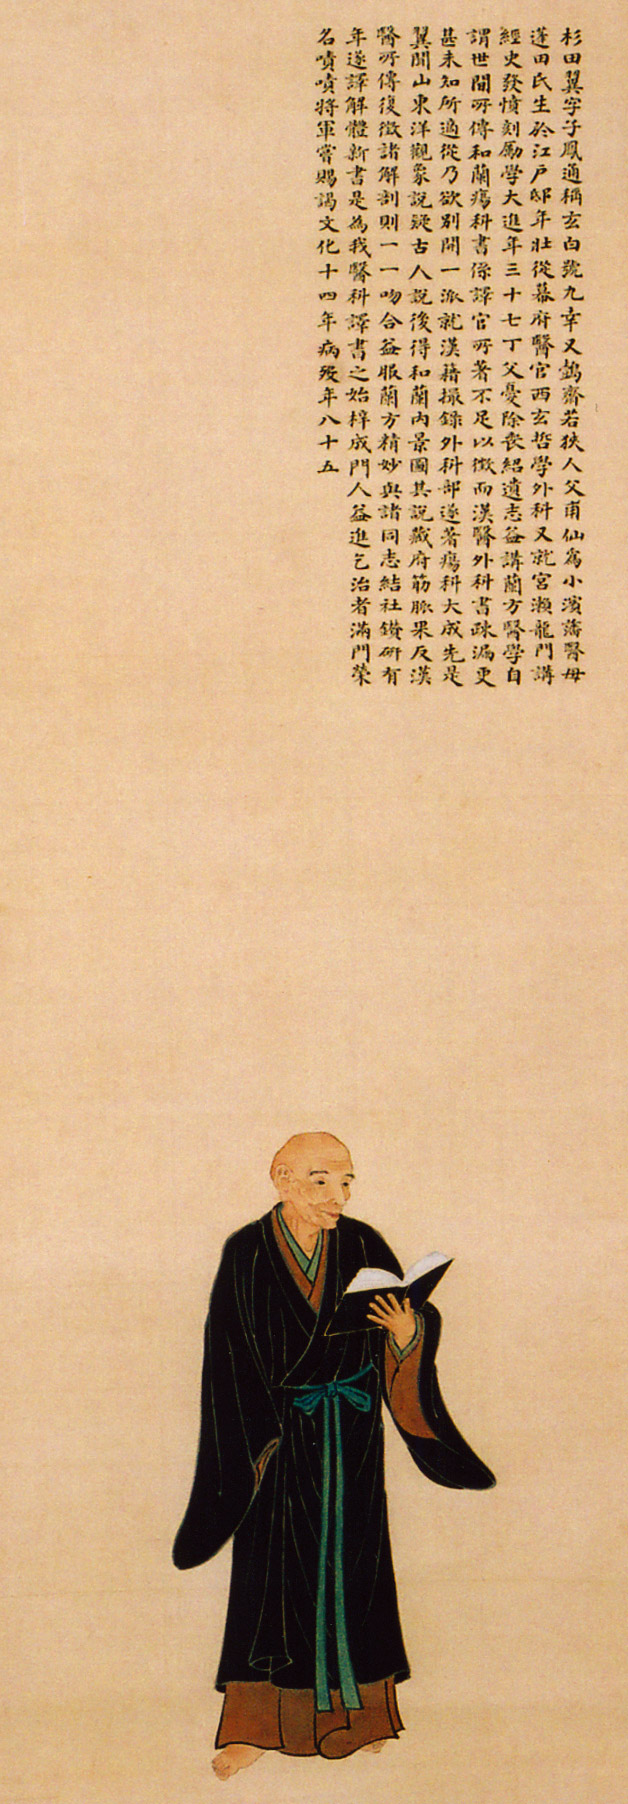 杉田翼字子鳳通稱玄白號九幸又鷧齋若狹人父甫仙爲小濱藩醫母
蓬田氏生於江戸邸年壯從幕府醫官西玄哲學外科又就宮瀨龍門講
經史發憤刻勵學大進年三十七丁父憂除喪紹遺志益講蘭方醫學自
謂世間所傳和蘭瘍科書係譯官所著不足以徵而漢醫外科書疎漏更
甚未知所適從乃欲別開一派就漢籍撮錄外科部遂著瘍科大成先是
翼聞山東洋觀象説疑古人説後得和蘭內景圖其說藏府筋脈果反漢
醫所傳復徵諸解剖則一一吻合益服蘭方精妙與諸同志結社鑽研有
年遂譯解體新書是為我醫科譯書之始梓成門人益進乞治者滿門榮
名嘖嘖將軍嘗賜謁文化十四年病歿年八十五